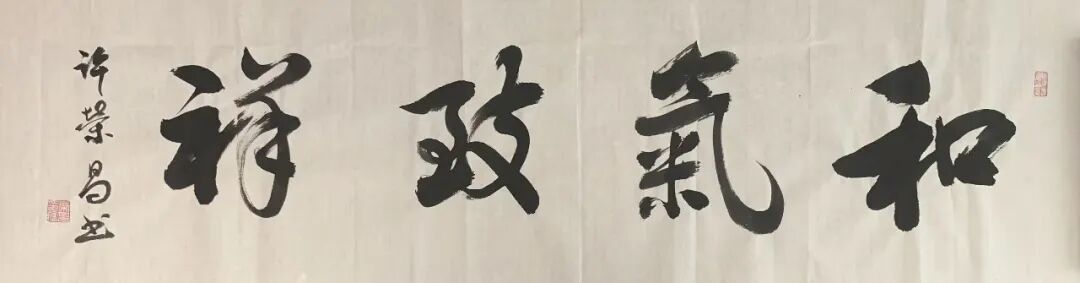 和氣致祥
许荣昌书